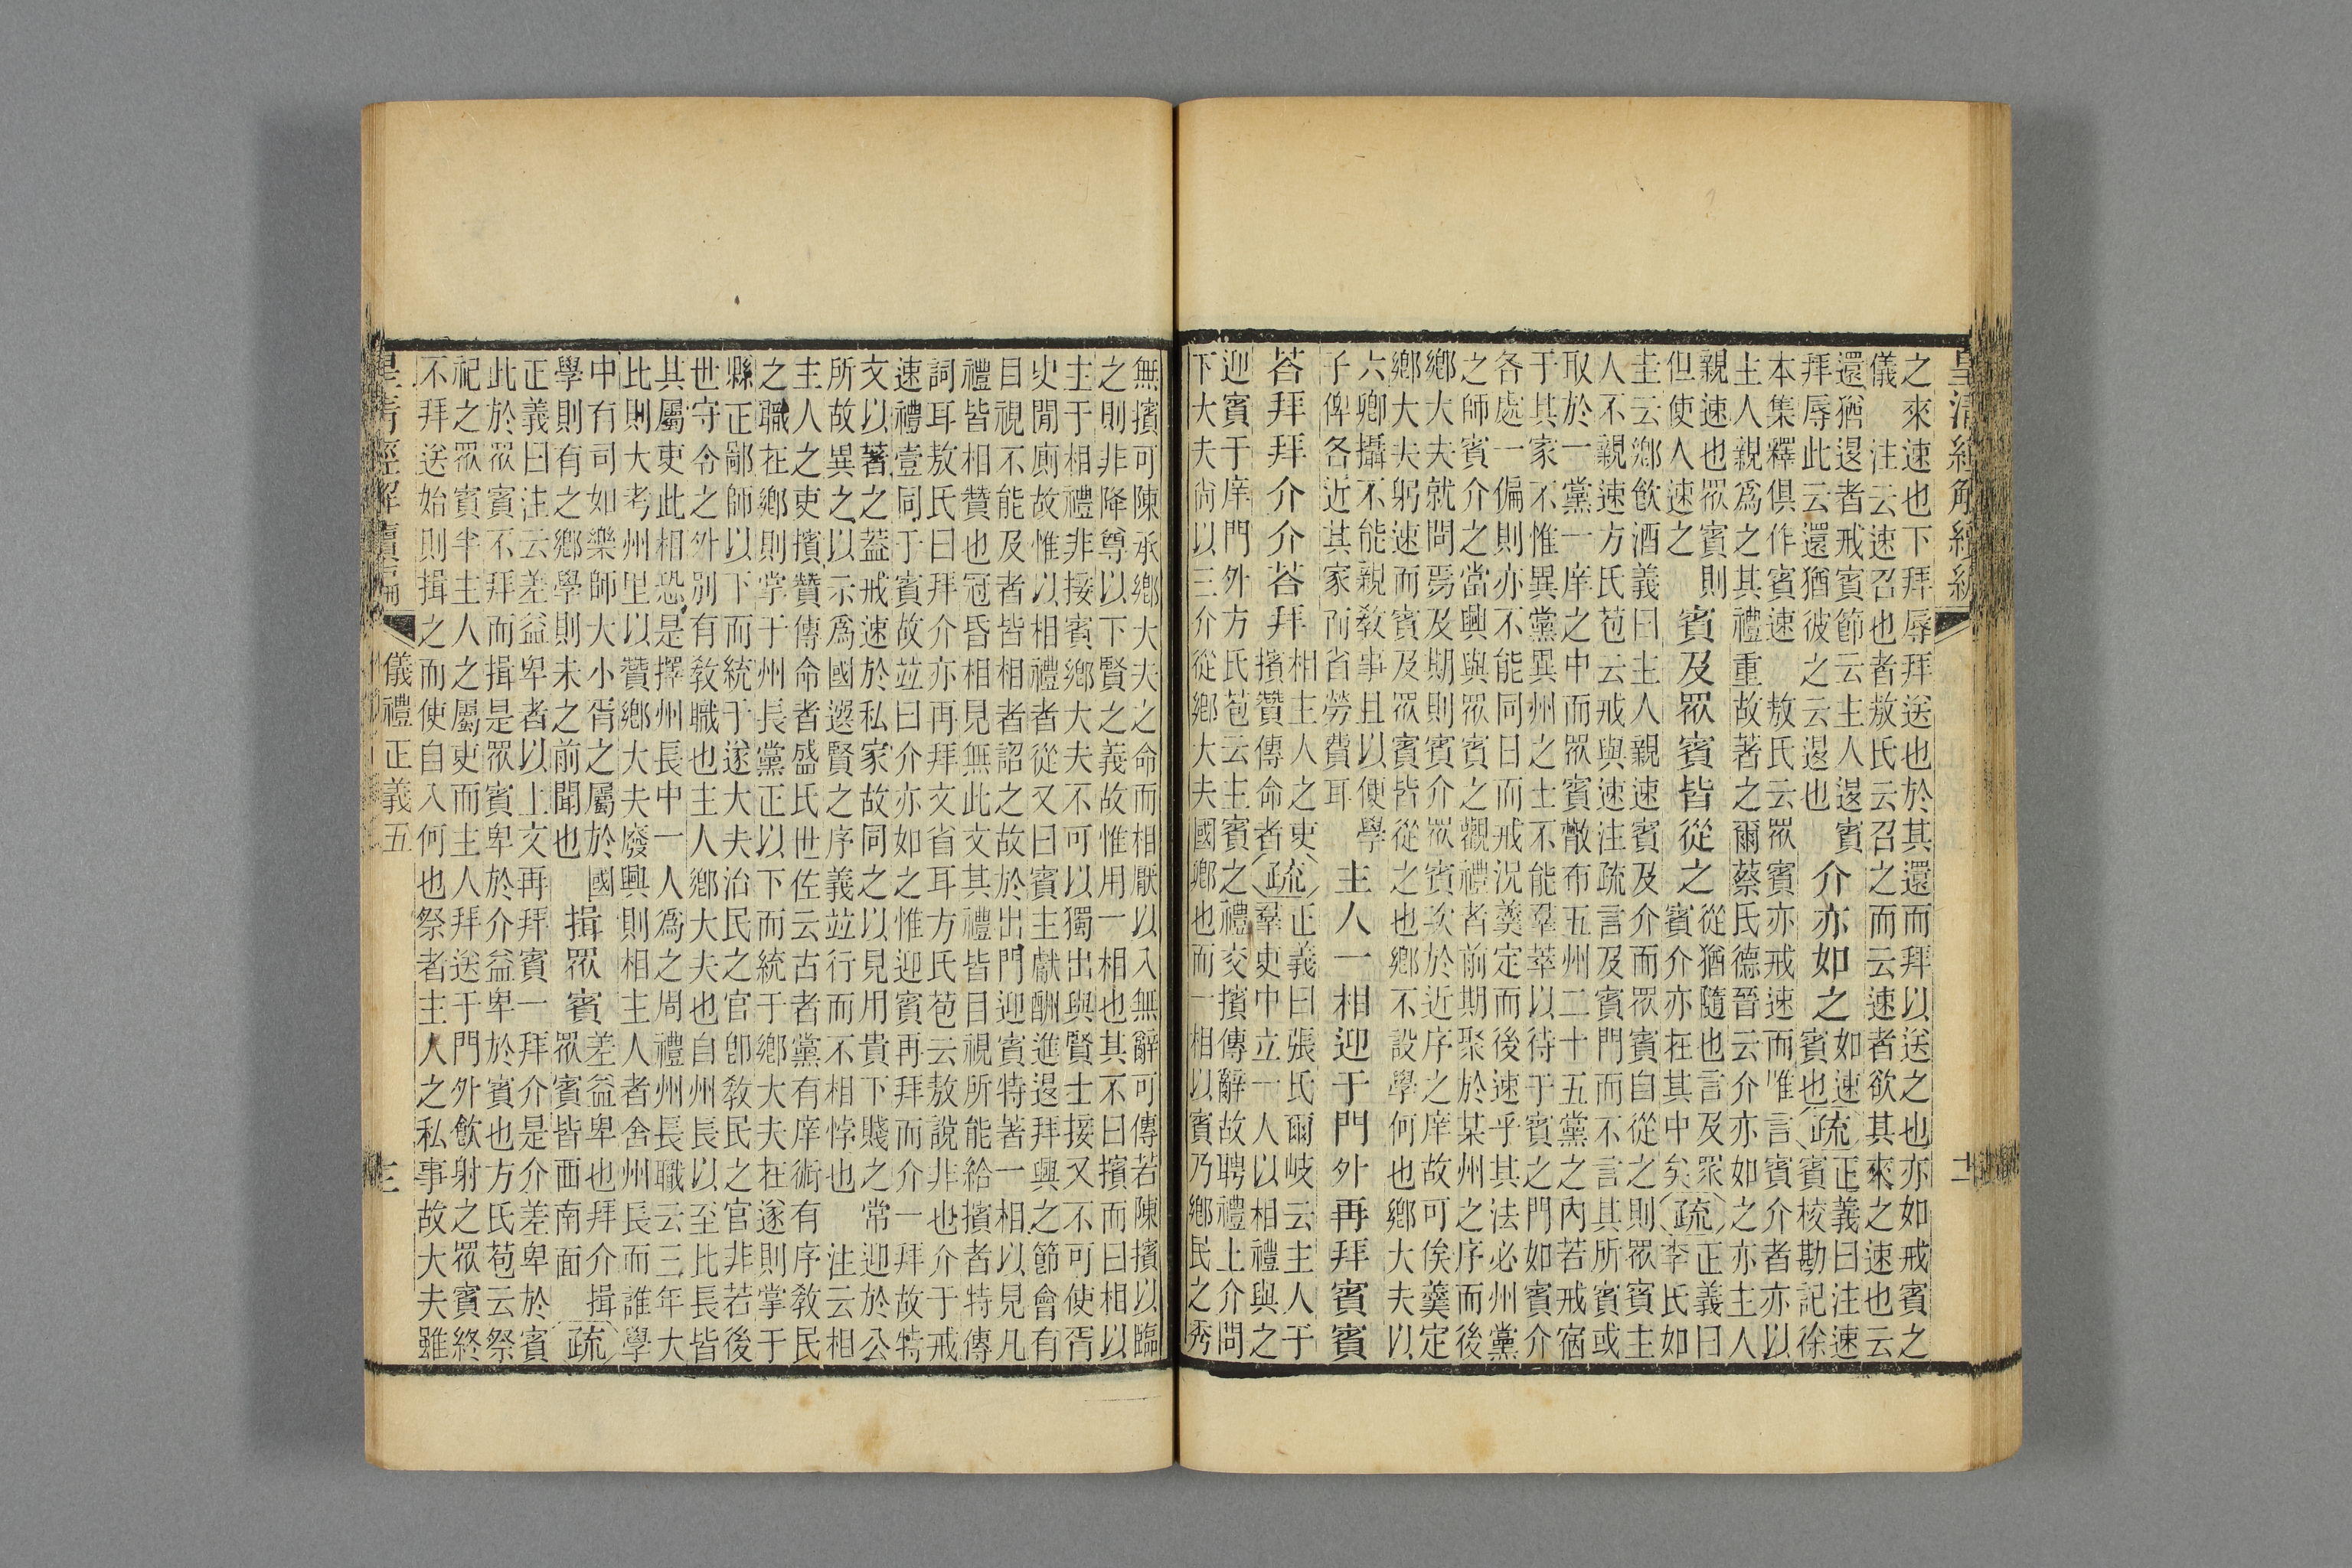 皇清經解續編
之來速也下拜辱拜送也於其還而拜以送之也亦如戒賓之
儀　注云速召也者敖氏云召之而云速者欲其來之速也云
還猶退者戒賓節云主人退賓
拜辱此云還猶彼之云退也
介亦如之
如速
賓也
疏
正義曰注速
賓校勘記徐
本集釋俱作賓速　敖氏云眾賓亦戒速而唯言賓介者亦以
主人親爲之其禮重故著之爾蔡氏德晉云介亦如之亦主人
親速也眾賓則
但使人速之
賓及眾賓皆從之
從猶隨也言及眾
賓介亦在其中矣
疏
正義曰
李氏如
圭云鄉飲酒義曰主人親速賓及介而眾賓自從之則眾賓主
人不親速方氏苞云戒與速注疏言及賓門而不言其所賓或
取於一黨一庠之中而眾賓散布五州二十五黨之內若戒宿
于其家不惟異黨異州之士不能羣萃以待于賓之門如賓介
各處一偏則亦不能同日而戒況羹定而後速乎其法必州黨
之師賓介之當興與眾賓之觀禮者前期聚於某州之序而後
鄉大夫就問焉及期則賓介眾賓次於近序之庠故可俟羹定
鄉大夫躬速而賓及眾賓皆從之也鄉不設學何也鄉大夫以
六卿攝不能親教事且以便學
子俾各近其家而省勞費耳
主人一相迎于門外再拜賓賓
荅拜拜介介荅拜
相主人之吏
擯贊傳命者
疏
正義曰張氏爾岐云主人于
羣吏中立一人以相禮與之
迎賓于庠門外方氏苞云主賓之禮交擯傳辭故聘禮上介問
下大夫尚以三介從鄉大夫國卿也而一相以賓乃鄉民之秀
無擯可陳承鄉大夫之命而相厭以入無辭可傳若陳擯以臨
之則非降尊以下賢之義故惟用一相也其不曰擯而曰相以
主于相禮非接賓鄉大夫不可以獨出與賢士接又不可使胥
史閒廁故惟以相禮者從又曰賓主獻酬進退拜興之節會有
目視不能及者皆相者詔之故於出門迎賓特著一相以見凡
禮皆相贊也冠昏相見無此文其禮皆目視所能給擯者特傳
詞耳敖氏曰拜介亦再拜文省耳方氏苞云敖說非也介于戒
速禮壹同于賓故竝曰介亦如之惟迎賓再拜而介一拜故特
文以著之蓋戒速於私家故同之以見用貴下賤之常迎於公
所故異之以示爲國選賢之序義竝行而不相悖也　注云相
主人之吏擯贊傳命者盛氏世佐云古者黨有庠術有序教民
之職在鄉則掌于州長黨正以下而統于鄉大夫在遂則掌于
縣正鄙師以下而統于遂大夫治民之官卽教民之官非若後
世守令之外別有教職也主人鄉大夫也自州長以至比長皆
其屬吏此相恐是擇州長中一人爲之周禮州長職云三年大
比則大考州里以贊鄉大夫廢興則相主人者舍州長而誰學
中有司如樂師大小胥之屬於國
學則有之鄉學則未之前聞也
揖眾賓
差益卑也拜介揖
眾賓皆西南面
疏
正義曰注云差益卑者以上文再拜賓一拜介是介差卑於賓
此於眾賓不拜而揖是眾賓卑於介益卑於賓也方氏苞云祭
祀之眾賓半主人之屬吏而主人拜送于門外飲射之眾賓終
不拜送始則揖之而使自入何也祭者主人之私事故大夫雖
皇清經解續編　儀禮正義五　三